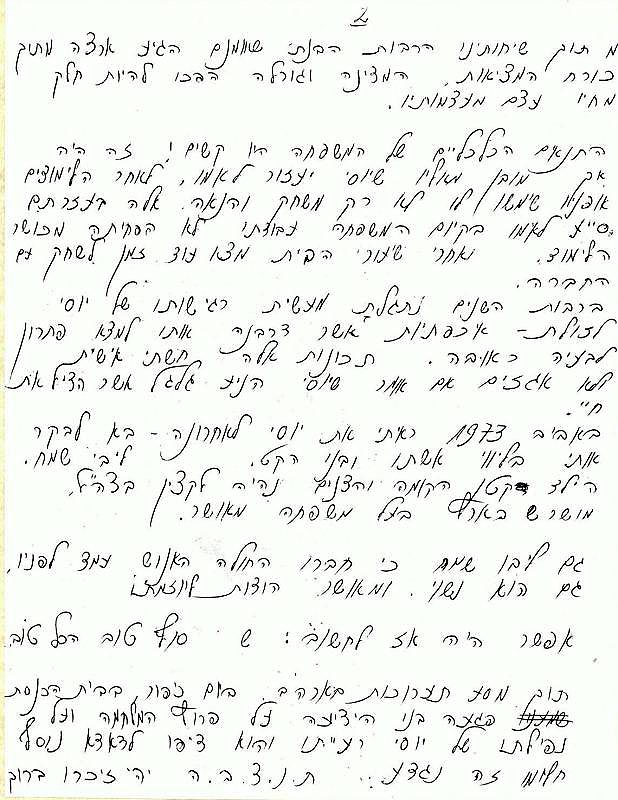 2
מתוך שיחותינו הרבות הבנתי שאמנם הגיע ארצה מתוך
כורח המציאות, המדינה וגורלה הפכו להיות חלק
מחייו עצם מעצמותיו.
התנאים הכלכליים של המשפחה היו קשים! זה היה
אך מובן מאליו שיוסי יעזור לאמו, לאחר הלימודים
אופניו שימשו לו לא רק משחק והנאה. אלה בעזרתם
סייע לאמו בקיום המשפחה עבודתו לא הפחיתה מכושר
הלימוד. ואחרי שיעורי הבית מצא עוד זמן לשחק עם
החברה.
ברבות השנים נתגלתה מעשית רגישותו של יוסי
לזולת - איכפתיות אשר דרבנה אותו למצא פתרון
לבעיה כאובה. תכונות אלה חשתי אישית
ולא אגזים אם אמר שיוסי הניע גלגל אשר הציל את
חיי.
באביב 1973 ראיתי את יוסי לאחרונה - בא לבקר
אותי בליווי אשתו ובני הקט. ליבי שמח.
הילד קטן הקומה והצנום נהיה לקצין בצה"ל,
מושרש בארץ בעל משפחה מאושר.
גם ליבו שמח כי חברו החולה האנוש עמד לפניו,
גם הוא נשוי ומאושר הודות ליוזמתו
אפשר היה אז לחשוב: ש סוף טוב הכל טוב.
תוך מסע תערוכות בארה"ב. ביום כיפור, בבית הכנסת
פגעה בנו הידיעה על פרוץ המלחמה ועל
נפילתו של יוסי רעייתו והוא ציפו לצאצא נוסף
חלומו זה נגדע... ת.נ.צ.ב.ה יהי זיכרו ברוך